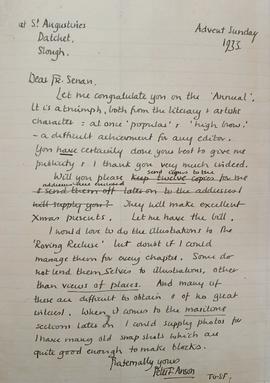 at St. Augustine's
Datchet,
Slough.
Advent Sunday
1935.
Dear Fr. Senan.
Let me congratulate you on the 'Annual'.
It is a triumph, both from the literary & artistic
character: at once 'popular' & 'high brow'
- a difficult achievement for any editor.
You have certainly done your best to give me
publicity & I thank you very much indeed.
send copies to the
Will you please keep twelve copies for me
addresses here enclosed
& send them off later on to the addresses I
will supply you? They will make excellent
Xmas presents. Let me have the bill.
I would love to do the illustrations to the
'Roving Recluse' but doubt if I could
manage them for every chapter. Some do
not lend themselves to illustrations, other
than views of places. And many of
these are difficult to obtain & of no great
interest. When it comes to the maritime
sections later on I could supply photos for
I have many old snap shots which are
quite good enough to make blocks.
Fraternally yours
Peter F. Anson